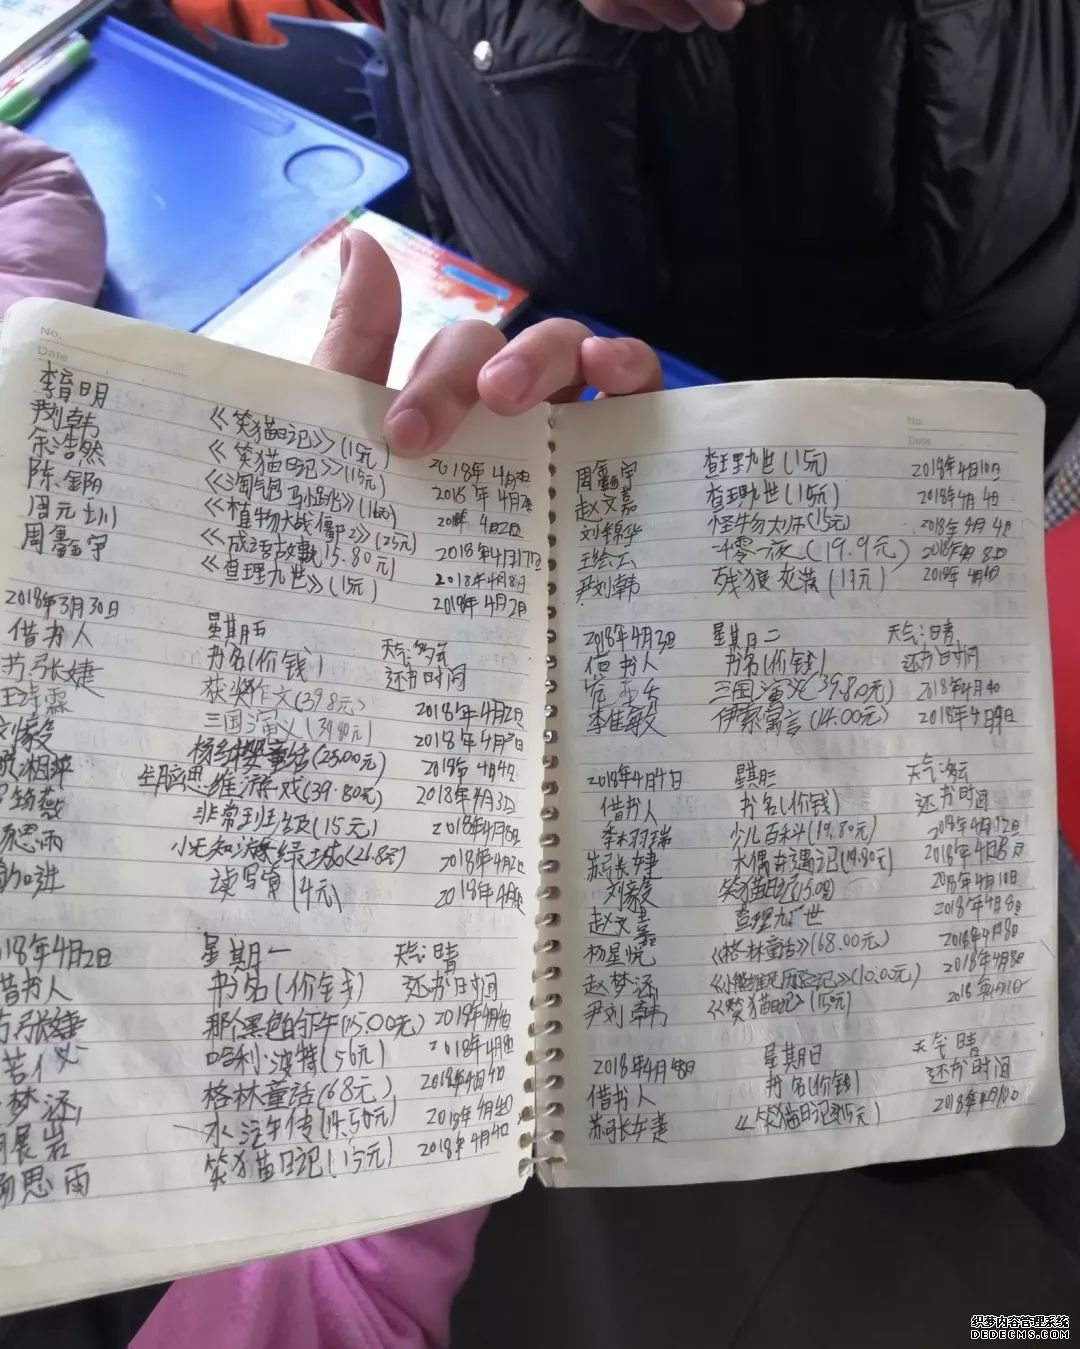 No.
Date
李育明 《笑猫日记》(15元) 2018年4月
尹刘韩 《笑猫日记》(15元) 2018年4月2日
余浩然 《淘气包马小跳》(16元) 2018年4月2日
陈 《植物大战僵尸2》(25元) 2018年4月17日
周元圳 《成语故事》15.80元) 2018年4月8日
周鑫宇 《查理九世》(15元) 2018年4月2日
2018年3月30日 星期五 天气:多云
借书人 书名(价钱) 还书时间
苏张婕 获奖作文(39.8元) 2018年4月2日
三国演义(39.80元) 2018年4月
刘豪 (25.00元) 2018年4月4
湘萍 全脑思维游戏(39.80元) 2018年4月3日
非常到班级(15元) 2018年4月8日
思雨 (26.8元) 2018年4月2日
读写 (4元) 2018年4月
018年4月2日 星期一 天气:晴
借书人 书名(价钱) 还书日时间
苏张婕 那个黑色的下午(15.00元) 2018年4月4日
哈利·波特(56元) 2018年4月8日
梦还 格林童话(68元) 2018年4月4日
晨岩 水浒传(14.50元) 2018年4月4日
思雨 笑猫日记(15元) 2018年4月4日
No.
Date
周鑫宇 查理九世(15元) 2018年4月10日
赵文嘉 查理九世(15元) 2018年4月4日
刘锦华 怪物大师(15元) 2018年4月4
王绘云 一千零一夜(19.9元) 2018年4月8日
尹刘韩 残狼灰满(17元) 2018年4月4日
2018年4月3日 星期二 天气:晴
借书人 书名(价钱) 还书日时间
三国演义(39.80元) 2018年4月4日
李佳敏 伊索寓言(14.00元) 2018年4月9日
2018年4月4日 星期三 天气:多云
借书人 书名(价钱) 还书时间
李羽瑞 少儿百科(19.80元) 2018年4月12日
苏张婕 木偶奇遇记(19.80元) 2018年4月5日
刘豪 笑猫日记(15.0元) 2018年4月10日
赵文嘉 查理九世 2018年4月8日
杨星悦 《格林童话》(68.00元) 2018年4月8日
赵梦还 历险记》(10.00元) 2018年4月8日
尹刘韩 《笑猫日记》(15元) 2018年4月
2018年4月8日 星期日 天气晴
借书人 书名(价钱) 还书时间
苏张婕 《笑猫日记》(15元) 2018年4月10日
织梦内容管理系统
DEDECMS.COM